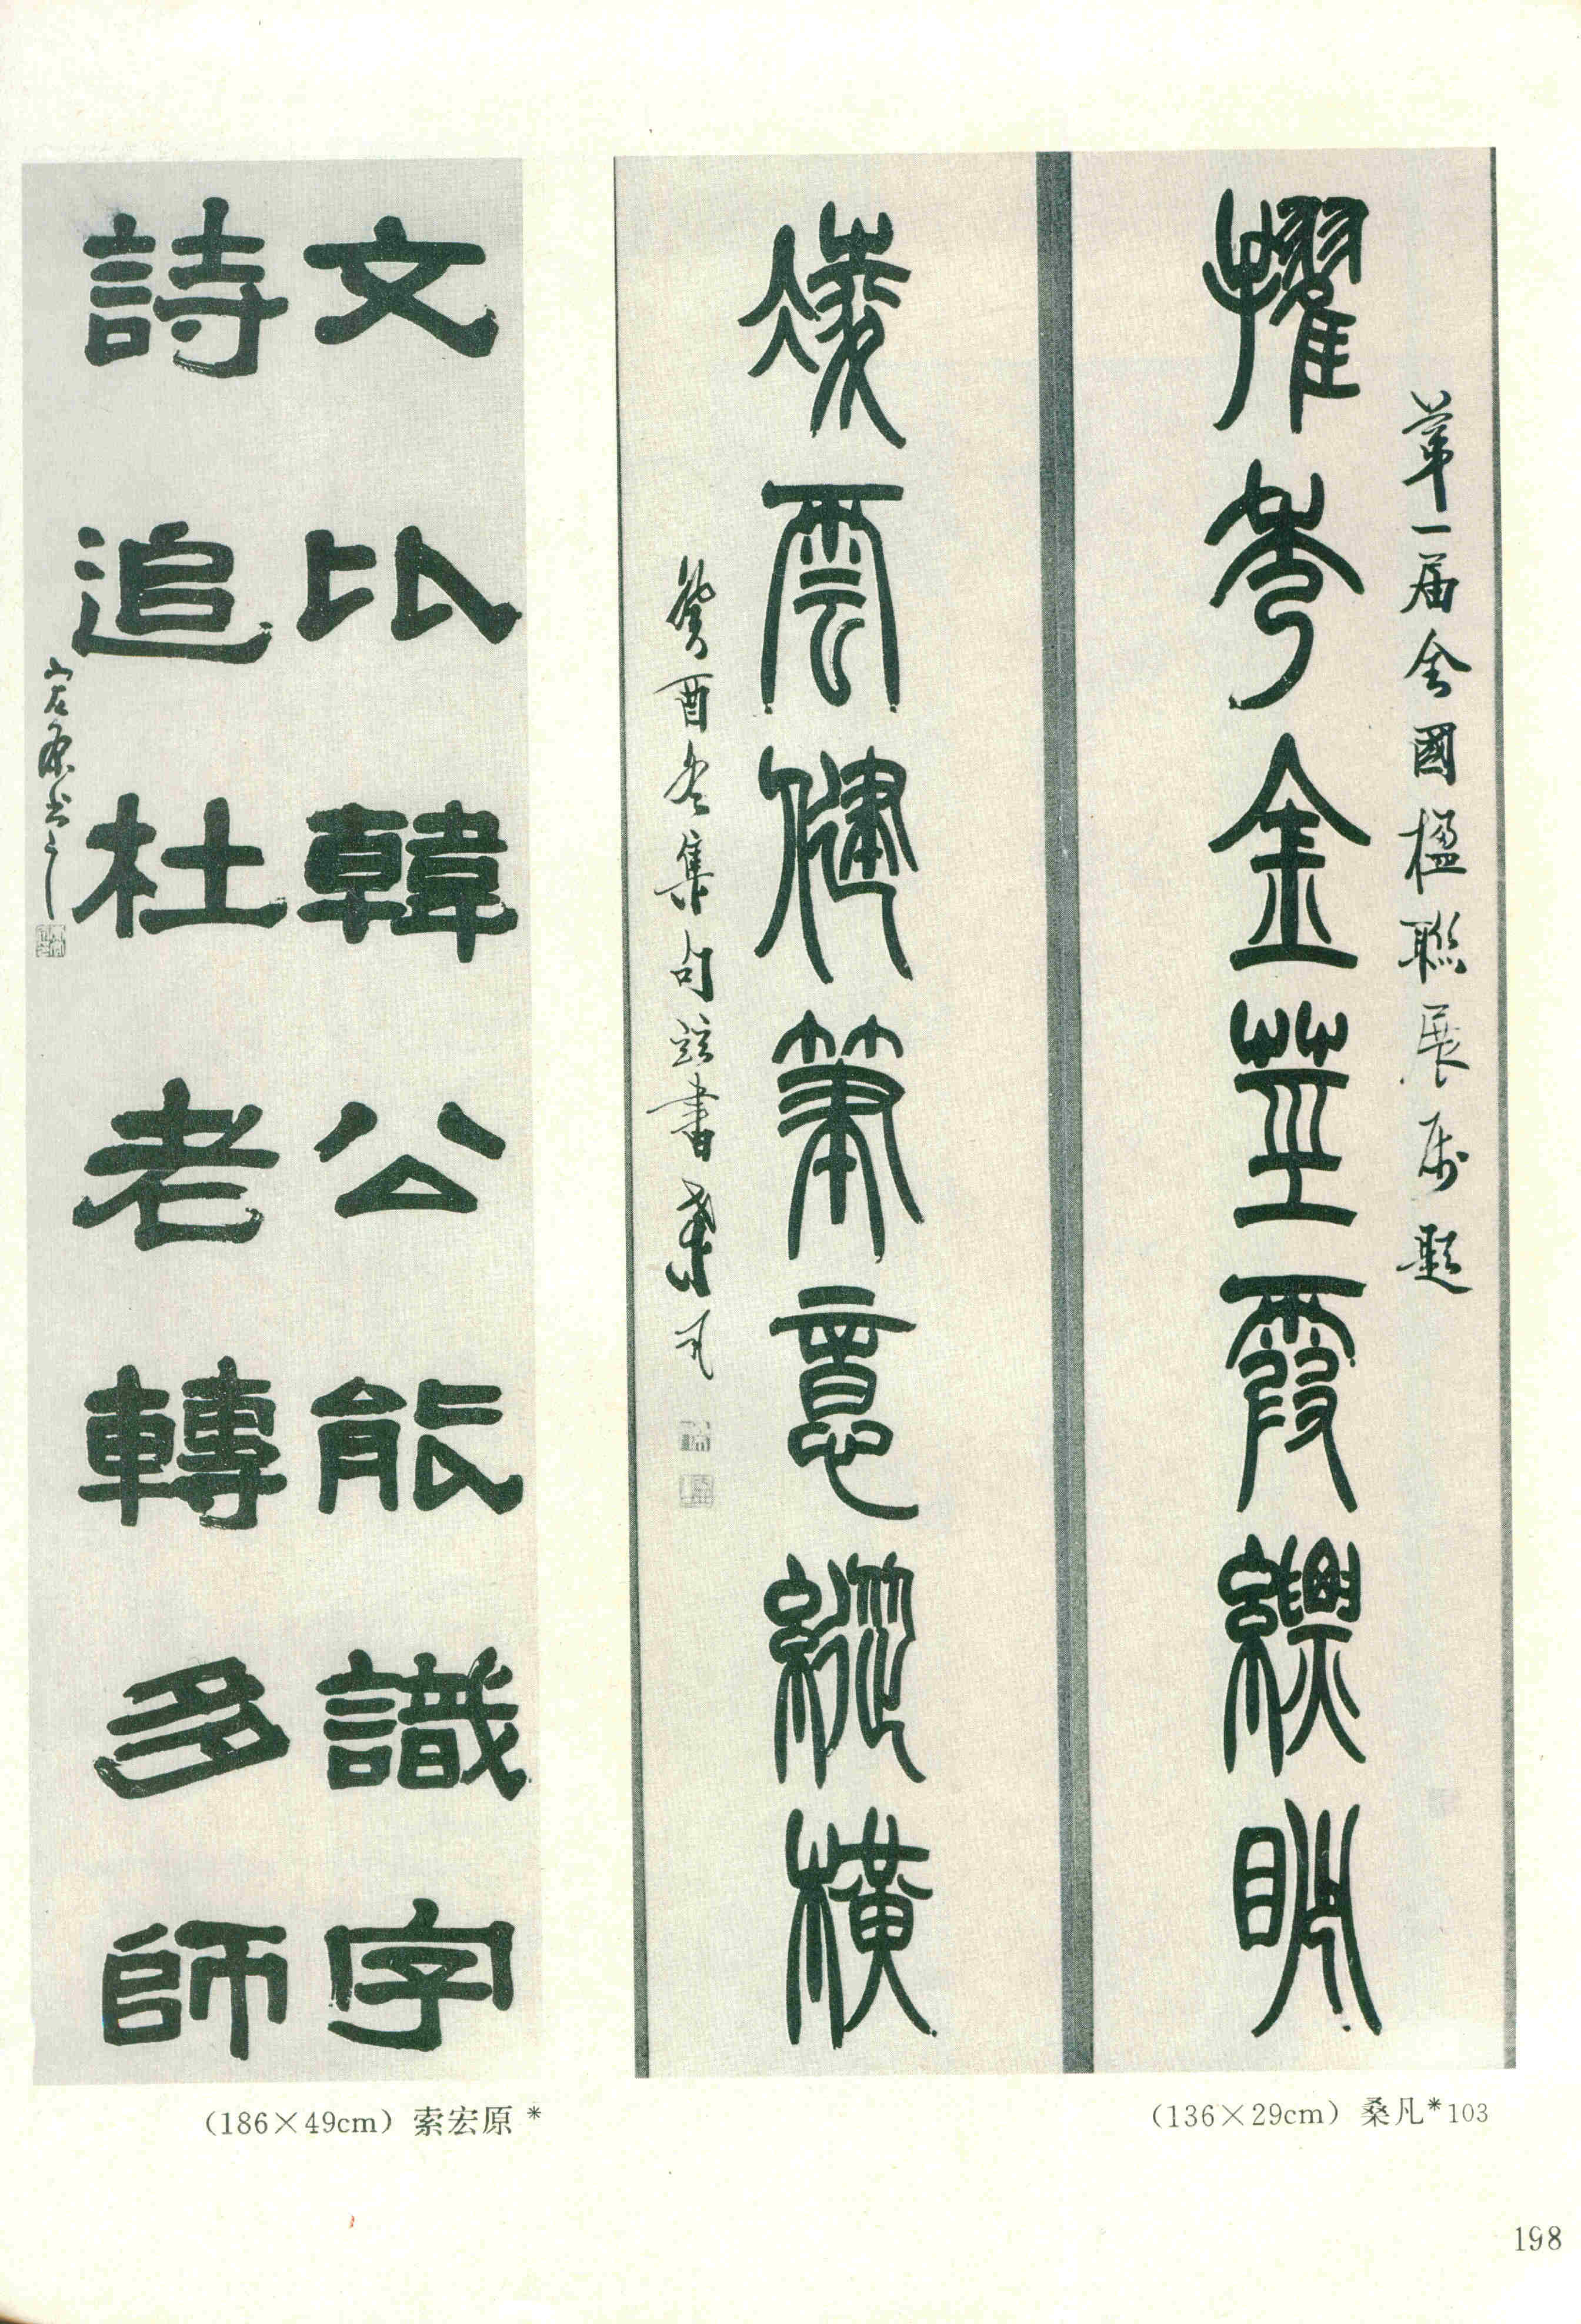 第一届全國楹聯展屬題
擢秀金莖霞縹眇
凌雲健筆意縱橫
癸酉冬集句書桑凡
文比韓公能識字
詩追杜老轉多師
宏原书之
（136×29cm）桑凡*103
（186×49cm）索宏原*
198